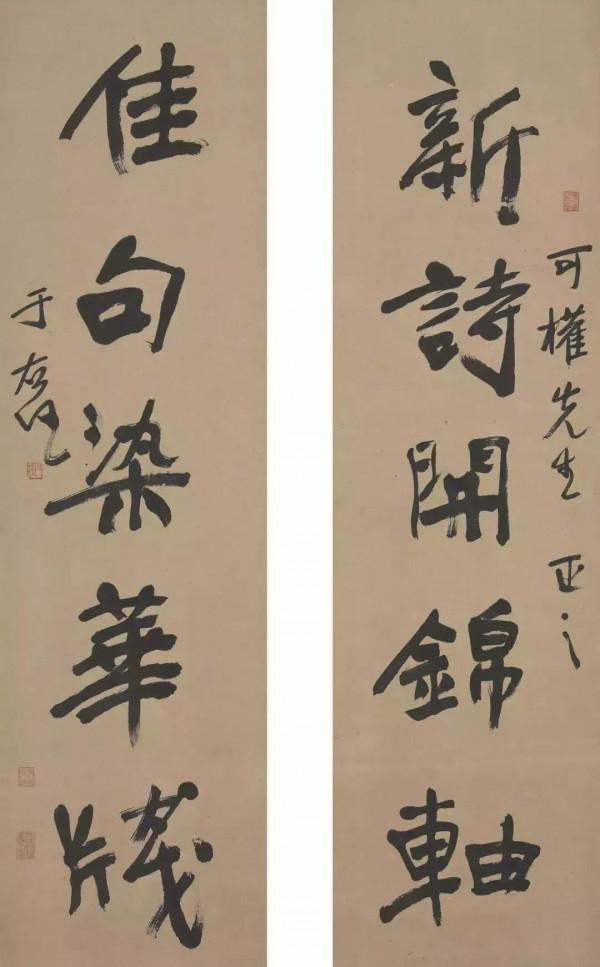 可權先生正之
新詩開錦軸
佳句染華牋
于右任